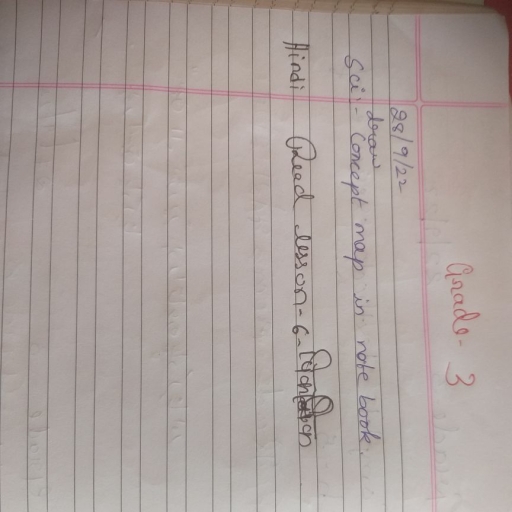 Grade - 3
28/9/22
draw
Sci - Concept map in note book.
Hindi Read lesson - 6 -